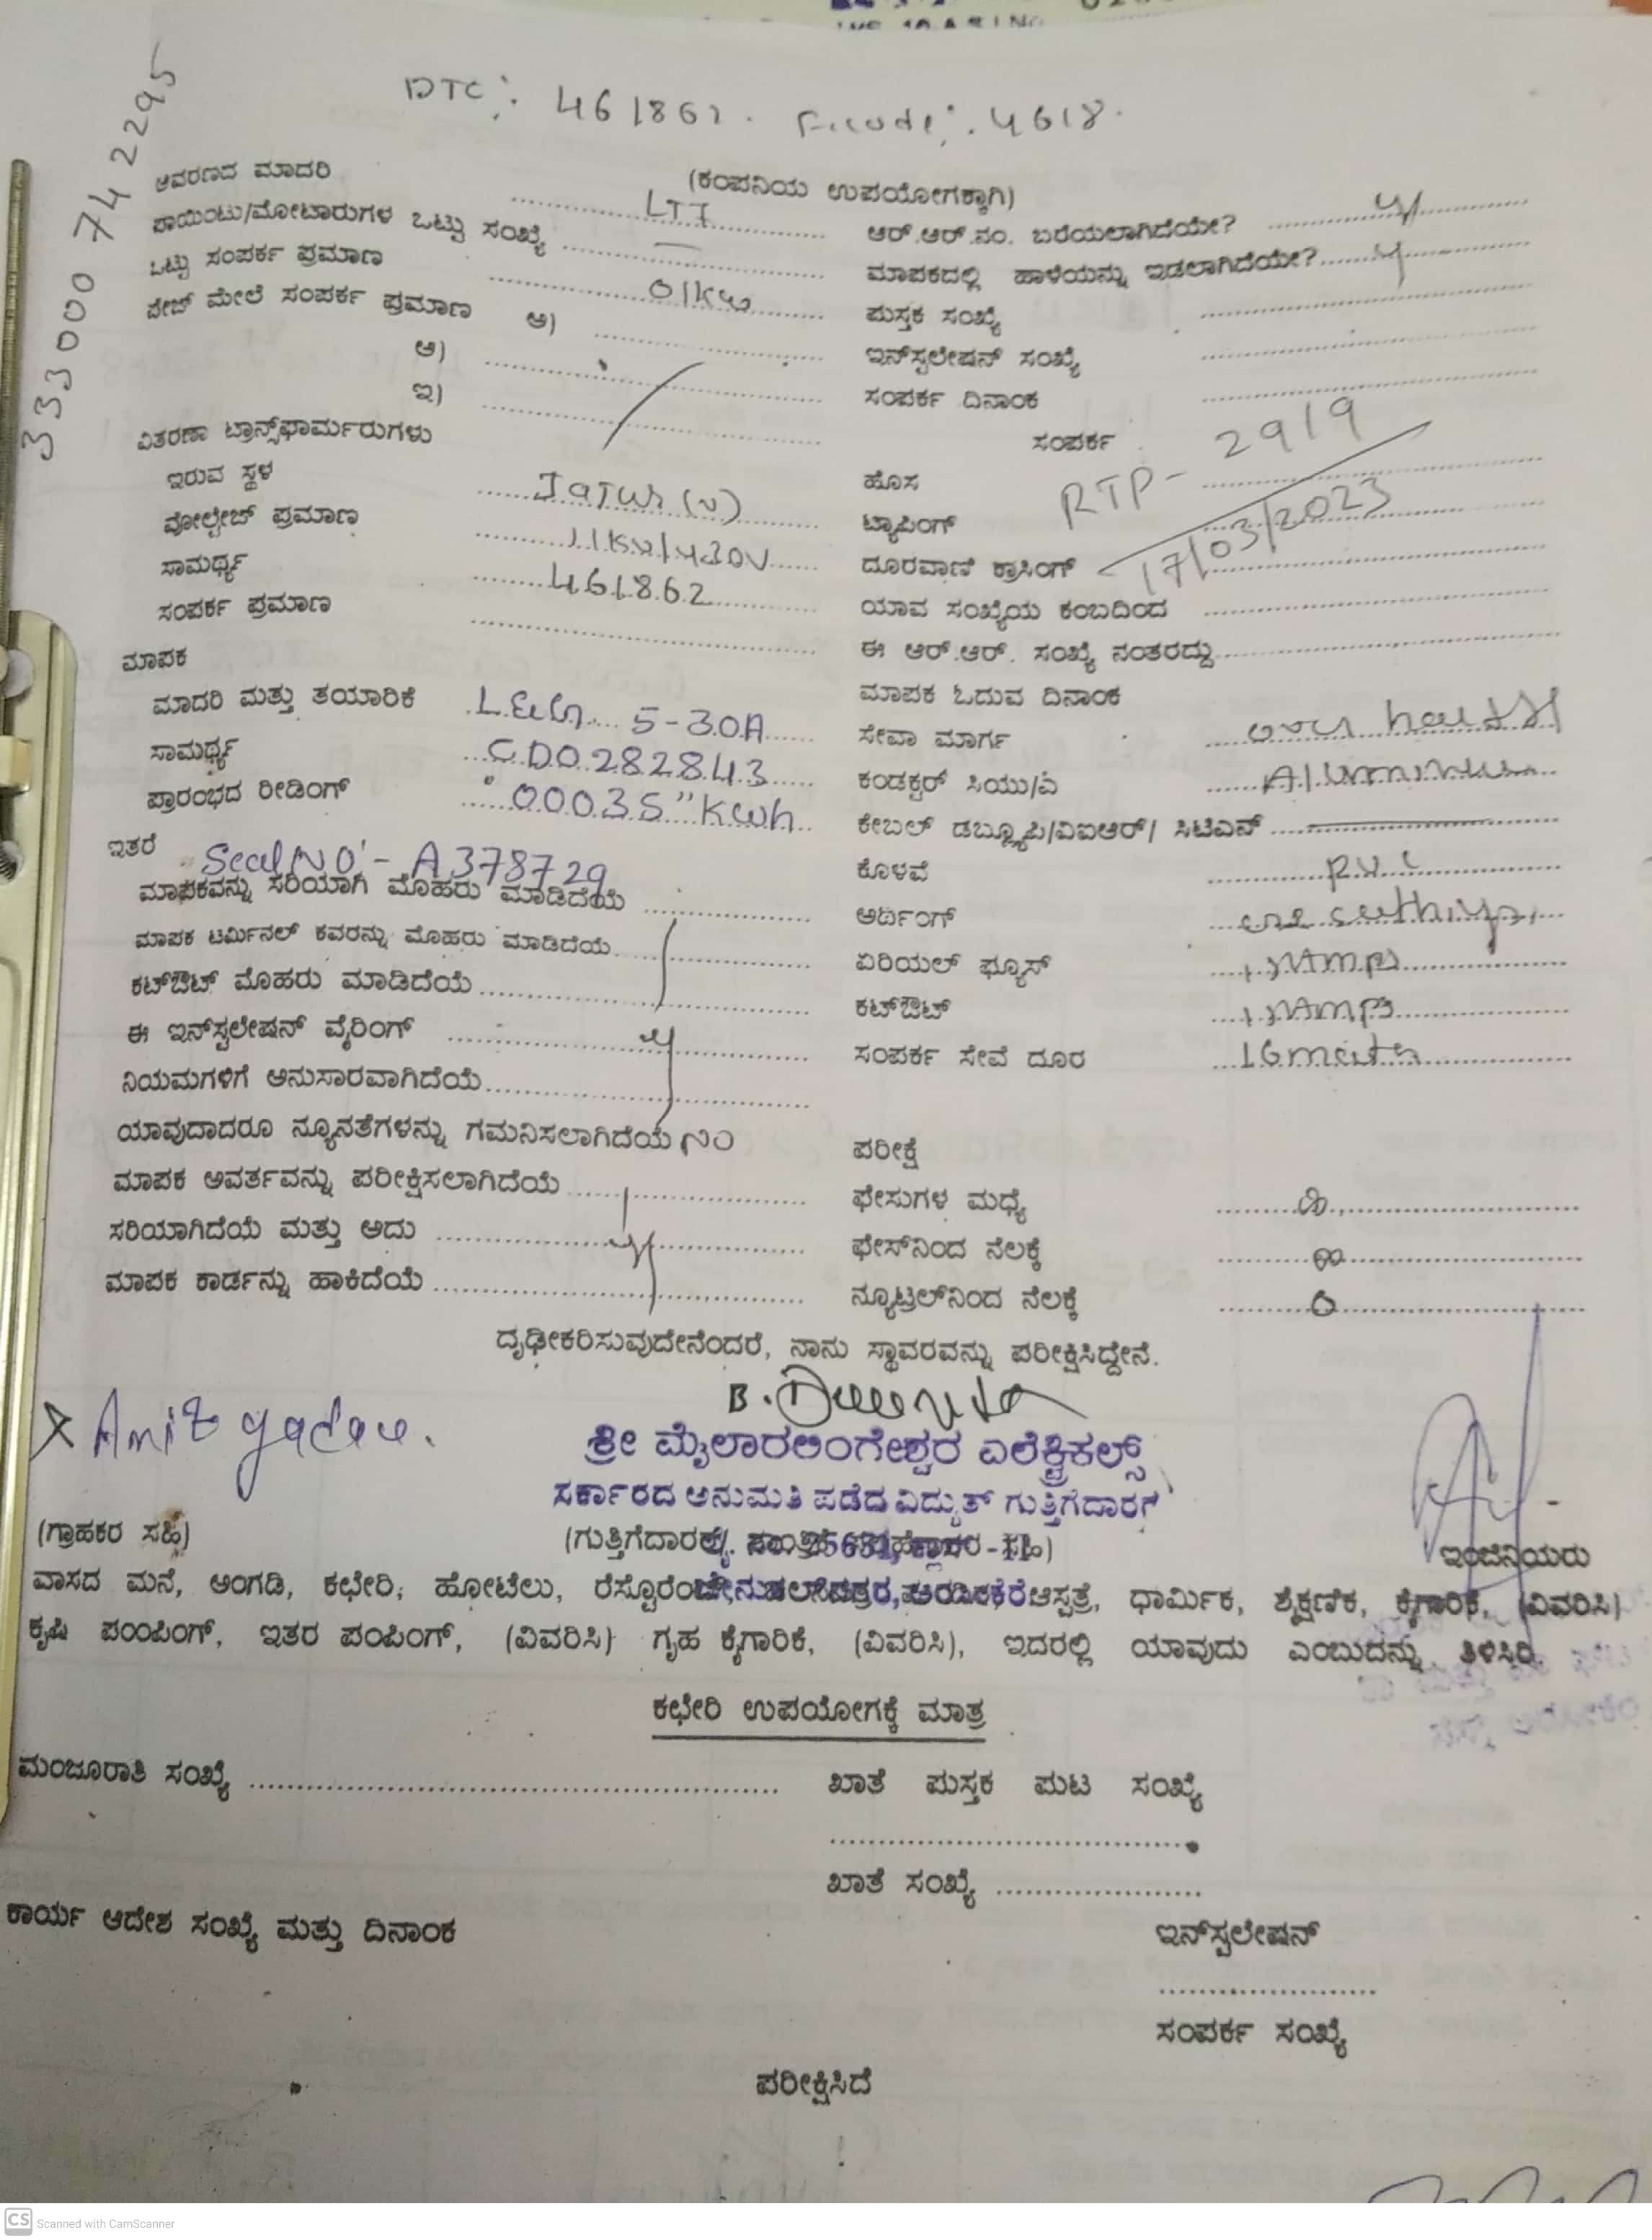 DTC: 461862. F.code: 4618.
33000742295
(ಕಂಪನಿಯ ಉಪಯೋಗಕ್ಕಾಗಿ)
ಆವರಣದ ಮಾದರಿ LT7
ಪಾಯಿಂಟು/ಮೋಟಾರುಗಳ ಒಟ್ಟು ಸಂಖ್ಯೆ —
ಒಟ್ಟು ಸಂಪರ್ಕ ಪ್ರಮಾಣ 01KW
ಪೇಜ್ ಮೇಲೆ ಸಂಪರ್ಕ ಪ್ರಮಾಣ ಅ)
ಆ)
ಇ)
ವಿತರಣಾ ಟ್ರಾನ್ಸ್‌ಫಾರ್ಮರುಗಳು
ಇರುವ ಸ್ಥಳ Jatur (v)
ವೋಲ್ಟೇಜ್ ಪ್ರಮಾಣ 11KV/430V
ಸಾಮರ್ಥ್ಯ 461862
ಸಂಪರ್ಕ ಪ್ರಮಾಣ
ಮಾಪಕ
ಮಾದರಿ ಮತ್ತು ತಯಾರಿಕೆ L&G 5-30A
ಸಾಮರ್ಥ್ಯ CD0282843
ಪ್ರಾರಂಭದ ರೀಡಿಂಗ್ "00035" Kwh
ಇತರೆ Seal No:- A378729
ಮಾಪಕವನ್ನು ಸರಿಯಾಗಿ ಮೊಹರು ಮಾಡಿದೆಯೆ
ಮಾಪಕ ಟರ್ಮಿನಲ್ ಕವರನ್ನು ಮೊಹರು ಮಾಡಿದೆಯೆ
ಕಟ್‌ಔಟ್ ಮೊಹರು ಮಾಡಿದೆಯೆ
ಈ ಇನ್‌ಸ್ಟಲೇಷನ್ ವೈರಿಂಗ್ y
ನಿಯಮಗಳಿಗೆ ಅನುಸಾರವಾಗಿದೆಯೆ
ಯಾವುದಾದರೂ ನ್ಯೂನತೆಗಳನ್ನು ಗಮನಿಸಲಾಗಿದೆಯೆ no
ಮಾಪಕ ಅವರ್ತವನ್ನು ಪರೀಕ್ಷಿಸಲಾಗಿದೆಯೆ
ಸರಿಯಾಗಿದೆಯೆ ಮತ್ತು ಅದು y
ಮಾಪಕ ಕಾರ್ಡನ್ನು ಹಾಕಿದೆಯೆ
ಆರ್.ಆರ್.ನಂ. ಬರೆಯಲಾಗಿದೆಯೇ? y
ಮಾಪಕದಲ್ಲಿ ಹಾಳೆಯನ್ನು ಇಡಲಾಗಿದೆಯೇ? y
ಪುಸ್ತಕ ಸಂಖ್ಯೆ
ಇನ್‌ಸ್ಟಲೇಷನ್ ಸಂಖ್ಯೆ
ಸಂಪರ್ಕ ದಿನಾಂಕ
ಸಂಪರ್ಕ
ಹೊಸ RTP- 2919
ಟ್ಯಾಪಿಂಗ್ 17/03/2023
ದೂರವಾಣಿ ಕ್ರಾಸಿಂಗ್
ಯಾವ ಸಂಖ್ಯೆಯ ಕಂಬದಿಂದ
ಈ ಆರ್.ಆರ್. ಸಂಖ್ಯೆ ನಂತರದ್ದು
ಮಾಪಕ ಓದುವ ದಿನಾಂಕ
ಸೇವಾ ಮಾರ್ಗ over head
ಕಂಡಕ್ಟರ್ ಸಿಯು/ಎ Aluminium
ಕೇಬಲ್ ಡಬ್ಲ್ಯೂಪಿ/ವಿಐಆರ್/ ಸಿಟಿಎಸ್
ಕೊಳವೆ P.V.C
ಅರ್ಥಿಂಗ್ one earthing
ಏರಿಯಲ್ ಫ್ಯೂಸ್
ಕಟ್‌ಔಟ್
ಸಂಪರ್ಕ ಸೇವೆ ದೂರ 16
ಪರೀಕ್ಷೆ
ಫೇಸುಗಳ ಮಧ್ಯೆ ∞
ಫೇಸ್‌ನಿಂದ ನೆಲಕ್ಕೆ ∞
ನ್ಯೂಟ್ರಲ್‌ನಿಂದ ನೆಲಕ್ಕೆ 0
ದೃಢೀಕರಿಸುವುದೇನೆಂದರೆ, ನಾನು ಸ್ಥಾವರವನ್ನು ಪರೀಕ್ಷಿಸಿದ್ದೇನೆ.
X Amit yadav.
ಶ್ರೀ ಮೈಲಾರಲಿಂಗೇಶ್ವರ ಎಲೆಕ್ಟ್ರಿಕಲ್ಸ್
ಸರ್ಕಾರದ ಅನುಮತಿ ಪಡೆದ ವಿದ್ಯುತ್ ಗುತ್ತಿಗೆದಾರರ
(ಗ್ರಾಹಕರ ಸಹಿ)
ಇಂಜಿನಿಯರು
ವಾಸದ ಮನೆ, ಅಂಗಡಿ, ಕಛೇರಿ, ಹೋಟೆಲು, ಆಸ್ಪತ್ರೆ, ಧಾರ್ಮಿಕ, ಶೈಕ್ಷಣಿಕ, ಕೈಗಾರಿಕೆ, (ವಿವರಿಸಿ)
ಕೃಷಿ ಪಂಪಿಂಗ್, ಇತರ ಪಂಪಿಂಗ್, (ವಿವರಿಸಿ) ಗೃಹ ಕೈಗಾರಿಕೆ, (ವಿವರಿಸಿ), ಇದರಲ್ಲಿ ಯಾವುದು ಎಂಬುದನ್ನು ತಿಳಿಸಿರಿ.
ಕಛೇರಿ ಉಪಯೋಗಕ್ಕೆ ಮಾತ್ರ
ಮಂಜೂರಾತಿ ಸಂಖ್ಯೆ
ಖಾತೆ ಪುಸ್ತಕ ಪುಟ ಸಂಖ್ಯೆ
ಖಾತೆ ಸಂಖ್ಯೆ
ಕಾರ್ಯ ಆದೇಶ ಸಂಖ್ಯೆ ಮತ್ತು ದಿನಾಂಕ
ಇನ್‌ಸ್ಟಲೇಷನ್
ಸಂಪರ್ಕ ಸಂಖ್ಯೆ
ಪರೀಕ್ಷಿಸಿದೆ
CS Scanned with CamScanner